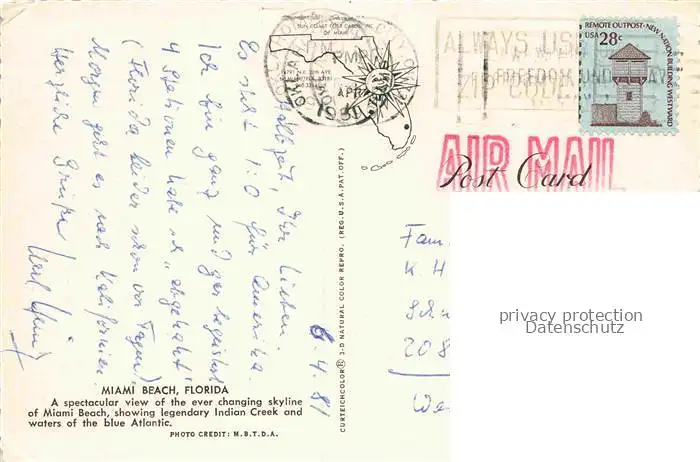 6.4.81
Hallihallo, Ihr Lieben.
Es steht 1:0 für Amerika.
Ich bin ganz und gar begeistert.
4 Stationen habe ich "abgehakt"
(Florida leider schon vor Tagen).
Morgen geht es nach Kalifornien.
Herzliche Grüße
MIAMI BEACH, FLORIDA
A spectacular view of the ever changing skyline
of Miami Beach, showing legendary Indian Creek and
waters of the blue Atlantic.
PHOTO CREDIT: M.B.T.D.A.
CURTEICHCOLOR® 3-D NATURAL COLOR REPRO. (REG. U.S.A. PAT. OFF.)
OF MIAMI
PM
APR
1981
ALWAYS USE
ZIP CODE
REMOTE OUTPOST·NEW NATION BUILDING WESTWARD
USA 28c
AIR MAIL
Post Card
Fam
K. H
Sch
208
We
privacy protection
Datenschutz